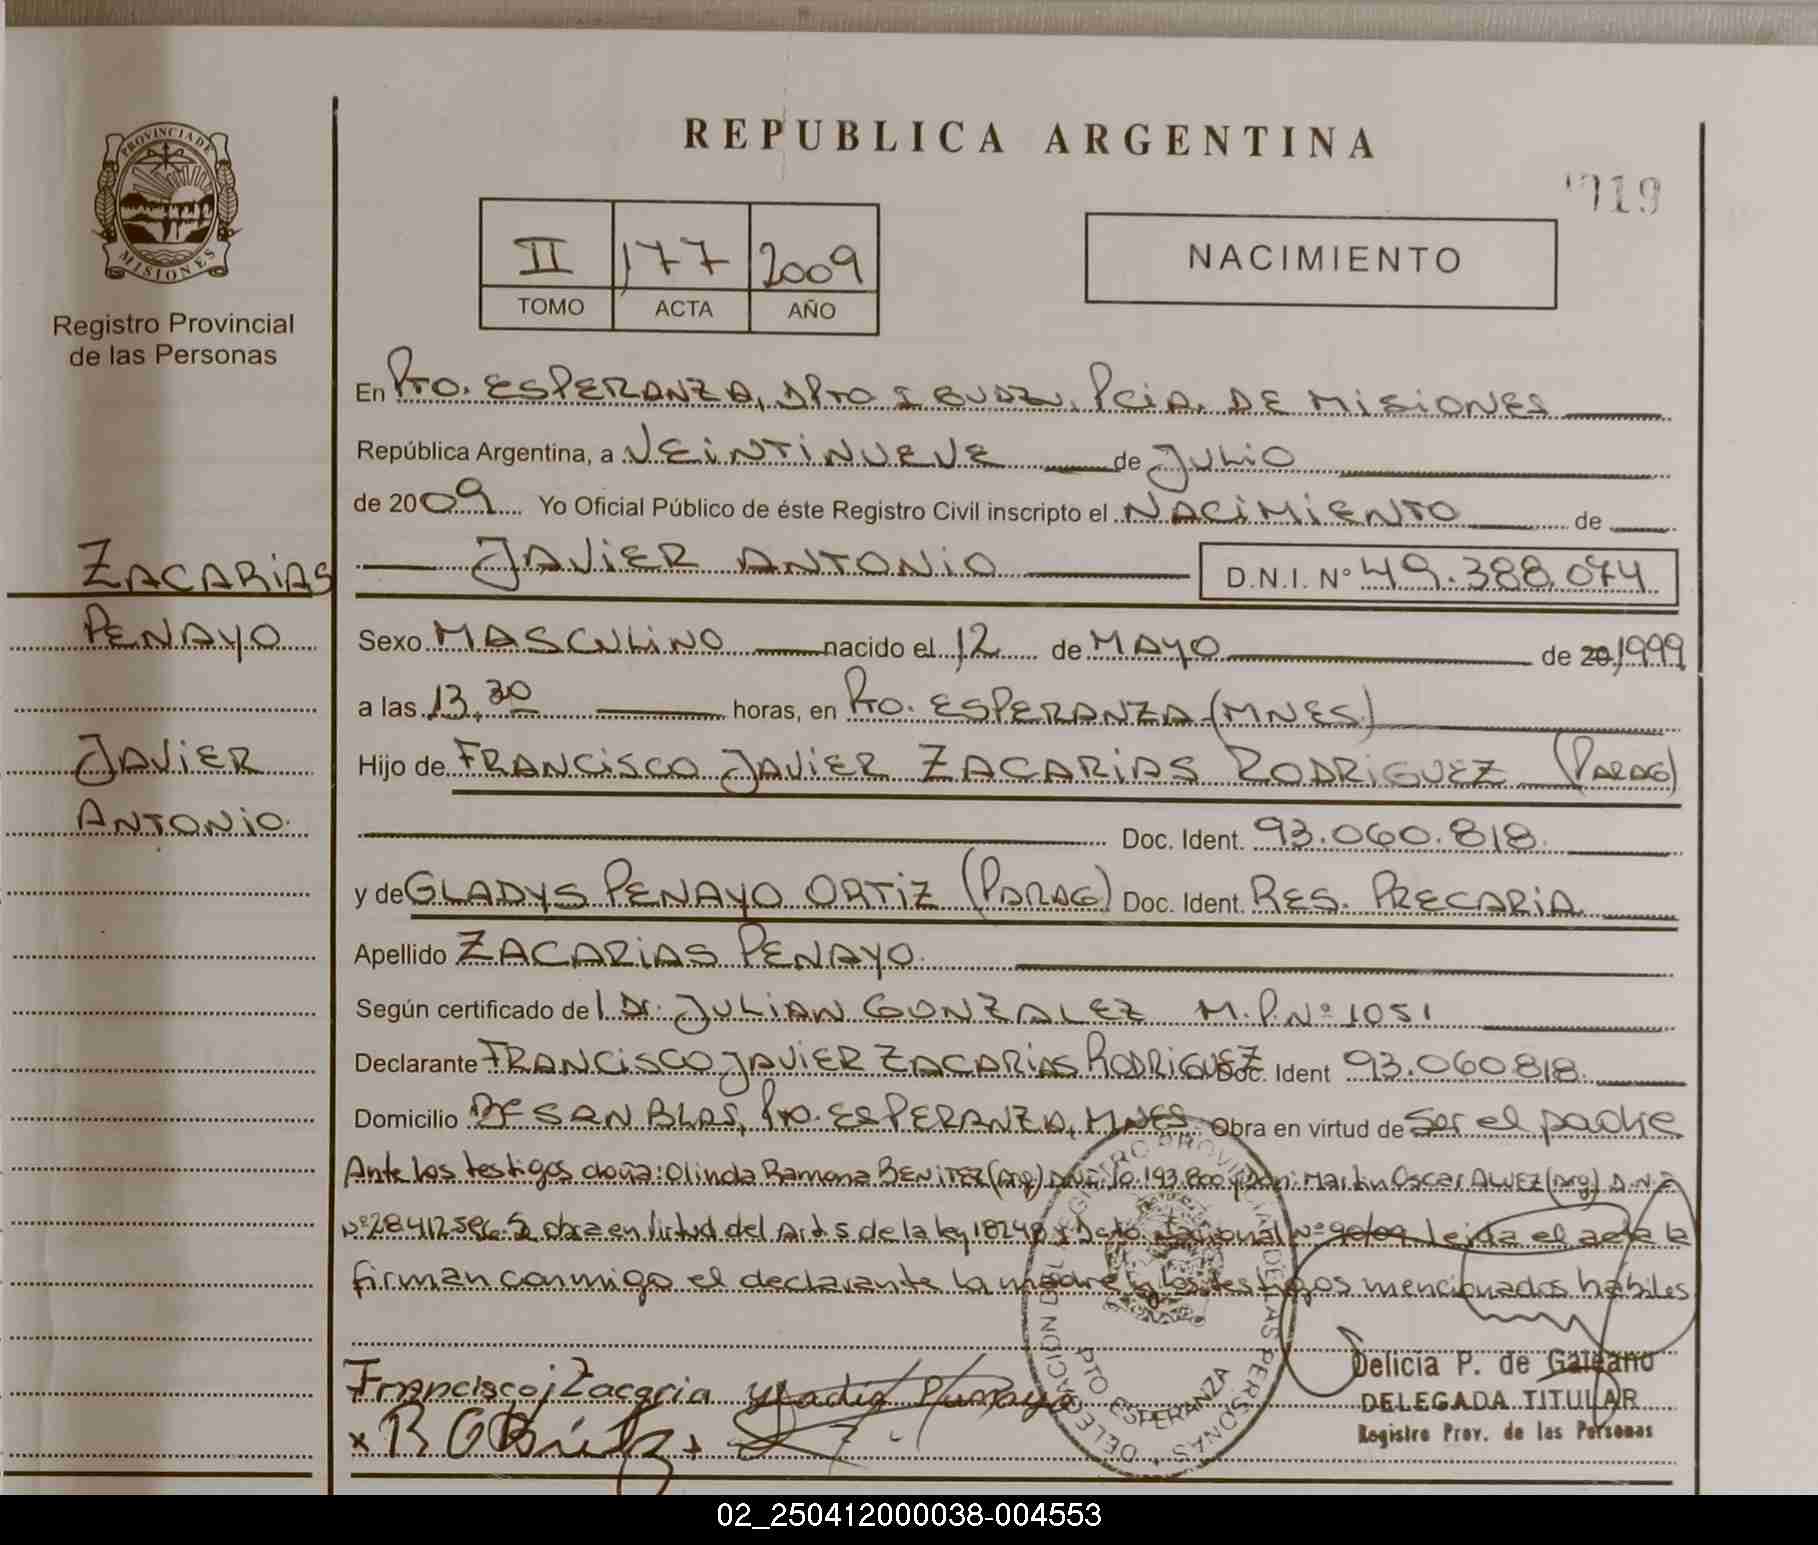 REPUBLICA ARGENTINA
719
PROVINCIA DE
MISIONES
Registro Provincial
de las Personas
II 177 2009
TOMO ACTA AÑO
NACIMIENTO
En Pto. ESPERANZA, DPTO IGUAZU, PCIA. DE MISIONES
República Argentina, a VEINTINUEVE de JULIO
de 2009 Yo Oficial Público de éste Registro Civil inscripto el NACIMIENTO de
JAVIER ANTONIO D.N.I. Nº 49.388.074
ZACARIAS
PENAYO
JAVIER
ANTONIO.
Sexo MASCULINO nacido el 12 de MAYO de 20 1999
a las 13,30 horas, en Pto. ESPERANZA (MNES)
Hijo de FRANCISCO JAVIER ZACARIAS RODRIGUEZ (PARAG)
Doc. Ident. 93.060.818.
y de GLADYS PENAYO ORTIZ (PARAG) Doc. Ident. RES. PRECARIA
Apellido ZACARIAS PENAYO.
Según certificado de l Dr. JULIAN GONZALEZ M.P.Nº 1051
Declarante FRANCISCO JAVIER ZACARIAS RODRIGUEZ Doc. Ident 93.060.818.
Domicilio Bº SAN BLAS, Pto. ESPERANZA, MNES. Obra en virtud de ser el padre
Ante los testigos doña: Olinda Ramona BENITEZ (Arg) D.N.I. 10.193.800 y Don: Martin Oscar ALVEZ (Arg) D.N.I
Nº 28.412.596. Se obra en virtud del Art 5 de la ley 18248 y Dcto Nacional Nº 90/09 Leida el acta la
firman conmigo el declarante la madre y los testigos mencionados habiles
Francisco j Zacaria
Delicia P. de Galeano
DELEGADA TITULAR
Registro Prov. de las Personas
REGISTRO PROVINCIAL DE LAS PERSONAS
DELEGACION
PTO ESPERANZA
02_250412000038-004553